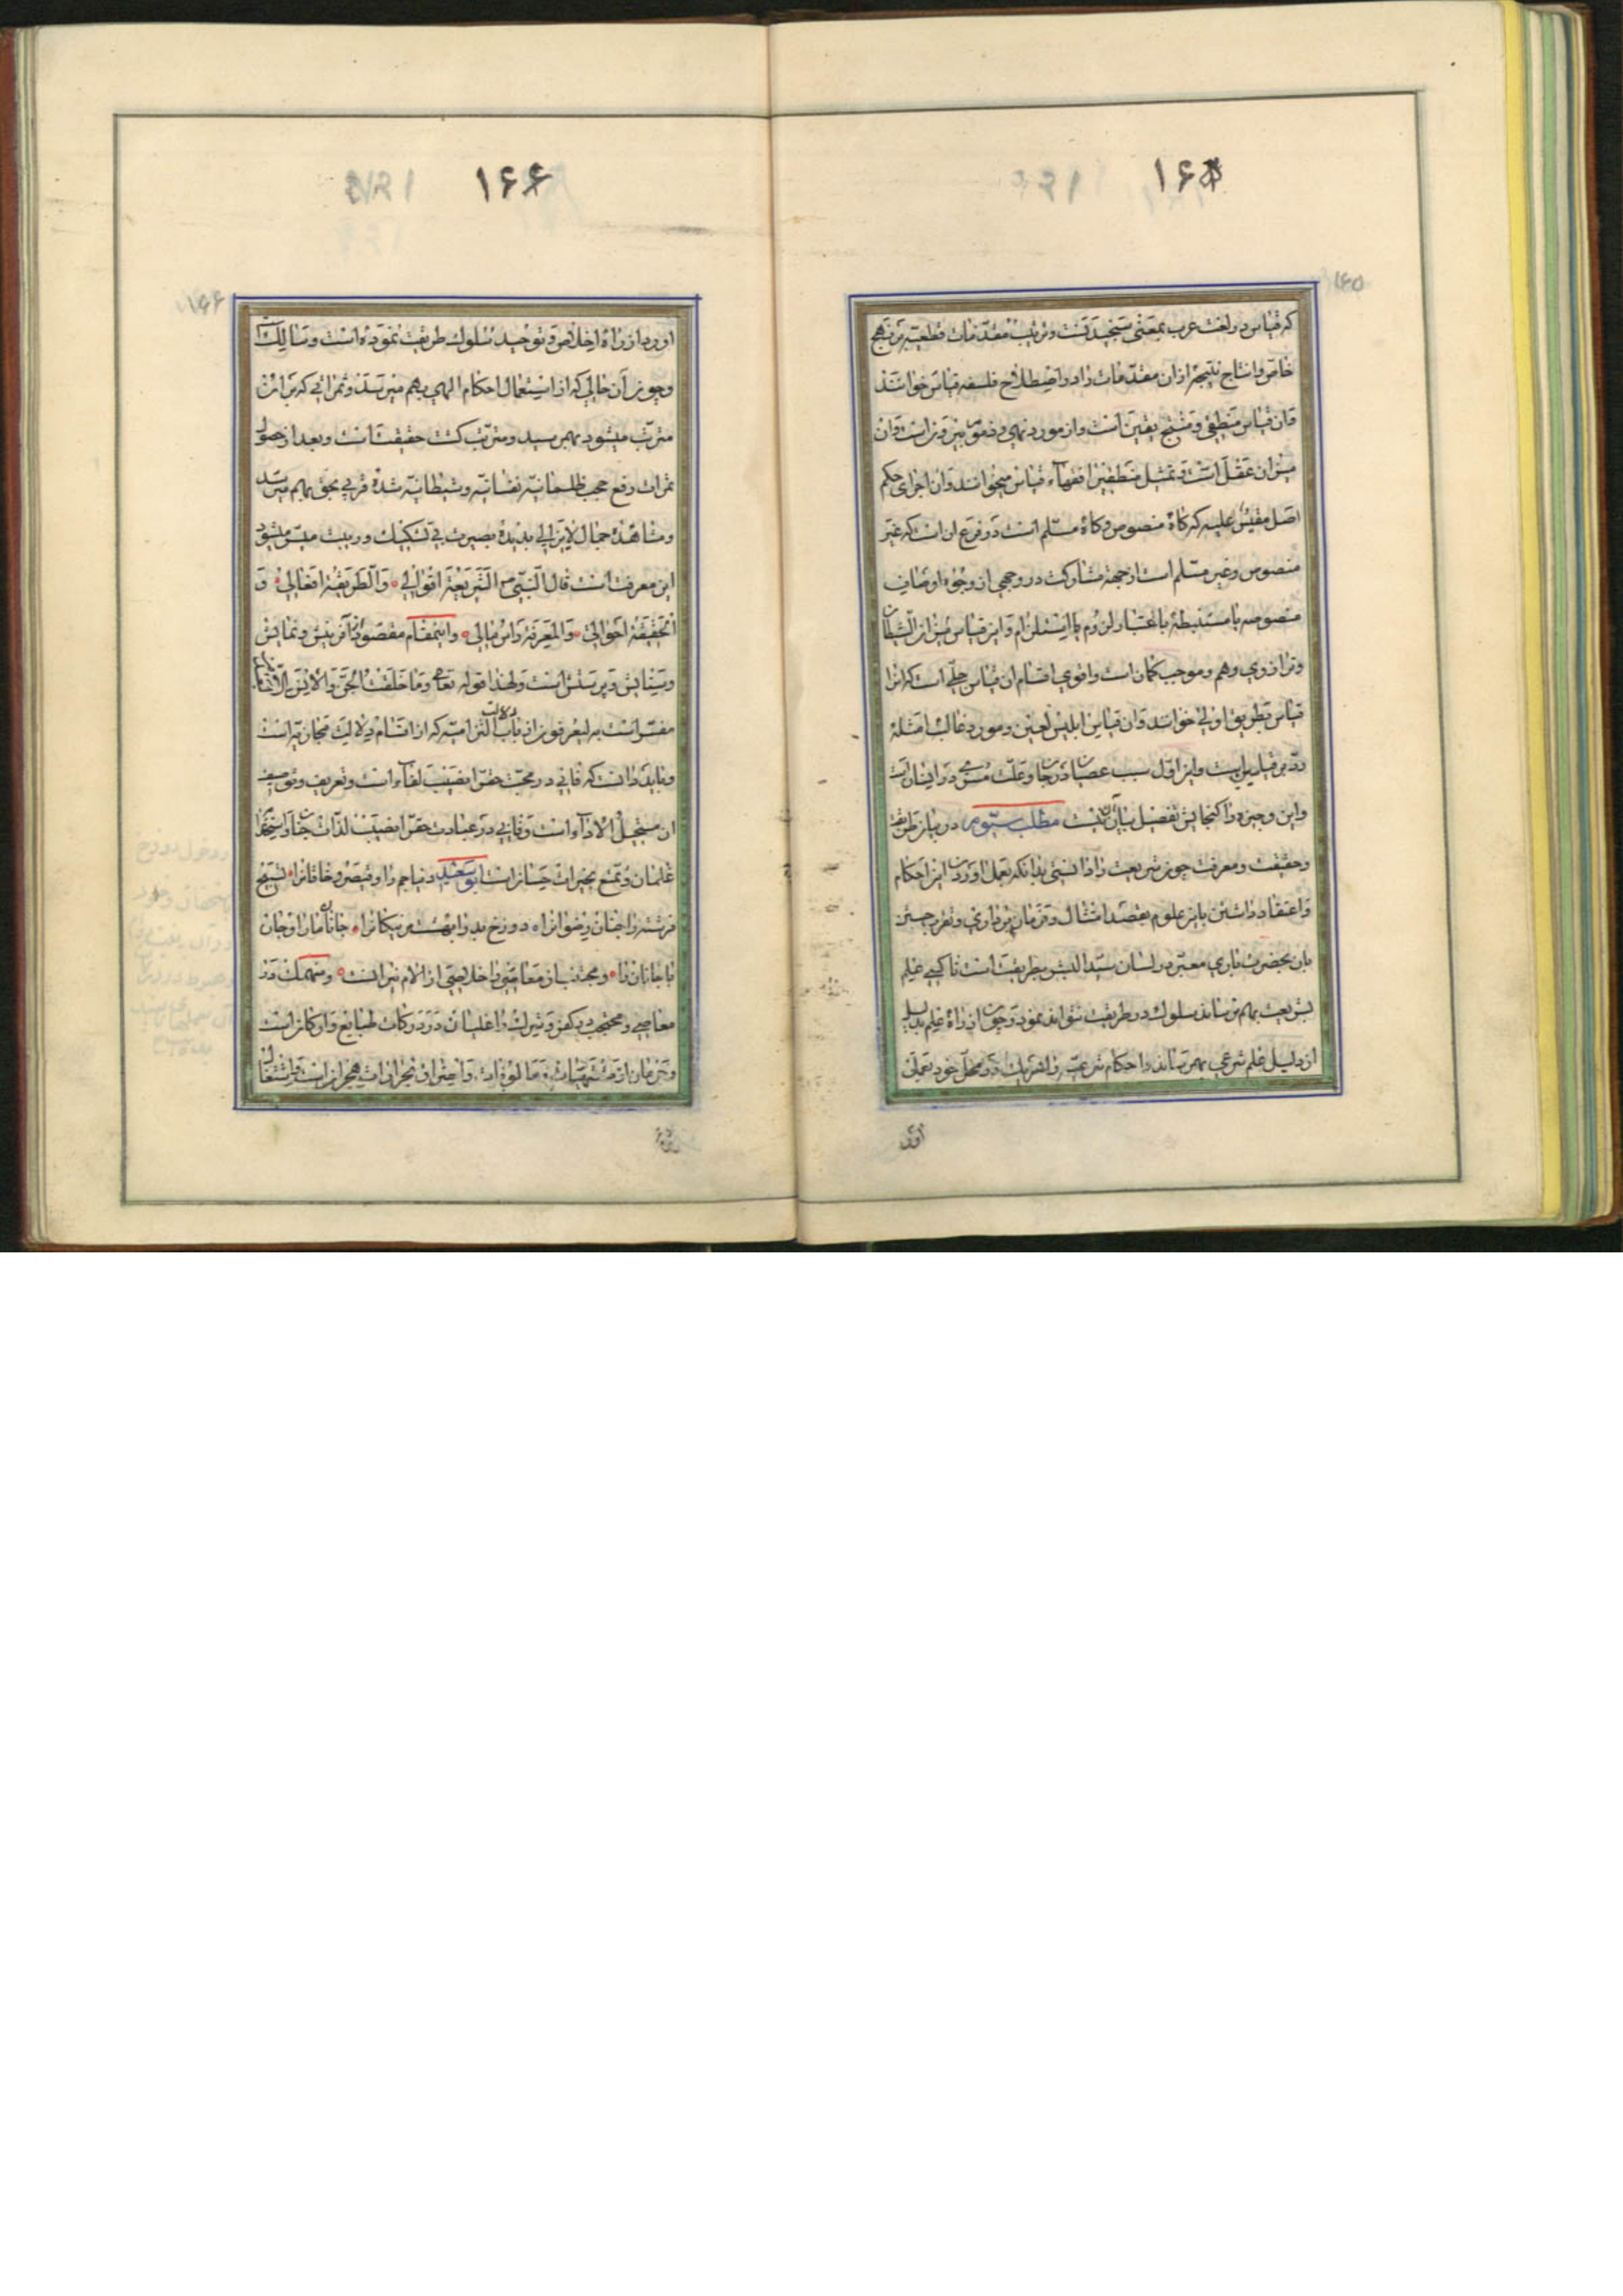 ۱۶۵
۱۶۵
که قیاس در لغت عرب بمعنی سنجیدنست و ترتیب مقدمات قطعیه بر نهج
خاص و انتاج نتیجه از آن مقدمات را در اصطلاح فلسفه قیاس خوانند
و آن قیاس منطقی و منتج یقین است و از مورد نهی و ذم بیرونست و آن
میزان عقل است و تمثیل منطقیین را فقهاء قیاس میخوانند و آن اجرای حکم
اصل مقیس علیه که گاه منصوص و گاه مسلم است در فرع آن است که غیر
منصوص و غیر مسلم است از جهة مشارکت در وجهی از وجوه اوصاف
منصوصه یا مستنبطه باعتبار لزوم یا استلزام و این قیاس میزان الشیطان
و ترازوی وهم و موجب گمان است و اقوی اقسام آن قیاس جلی است که آنرا
قیاس بطریق اولی خوانند و آن قیاس ابلیس لعین و مورد غالب امثله
رد بر قیاس است و این اول سبب عصیان در جان و علت مس در انسان است
و این وجیزه را گنجایش تفصیل بیان آن نیست مطلب سیوم در بیان طریقت
و حقیقت و معرفت چون شریعت را دانستی بدانکه بعمل آوردن این احکام
و اعتقاد داشتن باین علوم بقصد امتثال و فرمان برداری و تقرب جستن
بآن بحضرت باری معبر در لسان سید البشر بطریقت است تا کسی علم
بشریعت بهم نرساند سلوک در طریقت نتواند نمود و چون از راه علم بدلیل
از دلیل علم شرعی بهمرساند و احکام شرعیه را هر یک در محل خود بعمل
آورد
۱۶۶
۱۶۶
آورد از راه اخلاص و توحید سلوک طریقت نموده است و سالک
و چون آن حالی که از استعمال احکام الهی بهم میرسد و ثمراتی که بر آن
مترتب میشود بهمرسید و مترتب گشت حقیقت است و بعد از حصول
ثمرات رفع حجب ظلمانیه نفسانیه و شیطانیه شده قربی بحق بهم میرسد
و مشاهدۀ جمال لایزالی بدیدۀ بصیرت بی تشکیک و ریبت میسر میشود
این معرفت است قال النبی ص الشریعة اقوالی و الطریقة افعالی و
الحقیقة احوالی و المعرفة راس مالی و اینمقام مقصود از آفرینش و نمایش
و ستایش و پرستش است و لهذا قوله تعالی و ما خلقت الجن و الانس الا لیعبدون
مفسر است به لیعرفون از باب دلالت التزامیه که از اقسام دلالت مجازیه است
و باید دانست که فانی در محبت حق را نصیب لقاء است و تعریف و توصیف
آن مستحیل الاداء است و فانی در عبادت حق را نصیب لذات جنان و استخدام
غلمان و تمتع بخیرات حسان است ابو سعید دنیا جم را و قیصر و خاقان را تسبیح
فرشته را جنان رضوان را دوزخ بد را بهشت مر نیکان را جانان ما را و جان
ما جانان را و مجتنب از معاصی را خلاصی از الام نیران است و منهمک در
معاصی و محتجب در کفر و شرک را غلیان در درکات طبایع و ارکان است
و حرمان از مشتهیات و مالوفات و احتراق بنیران هجران است